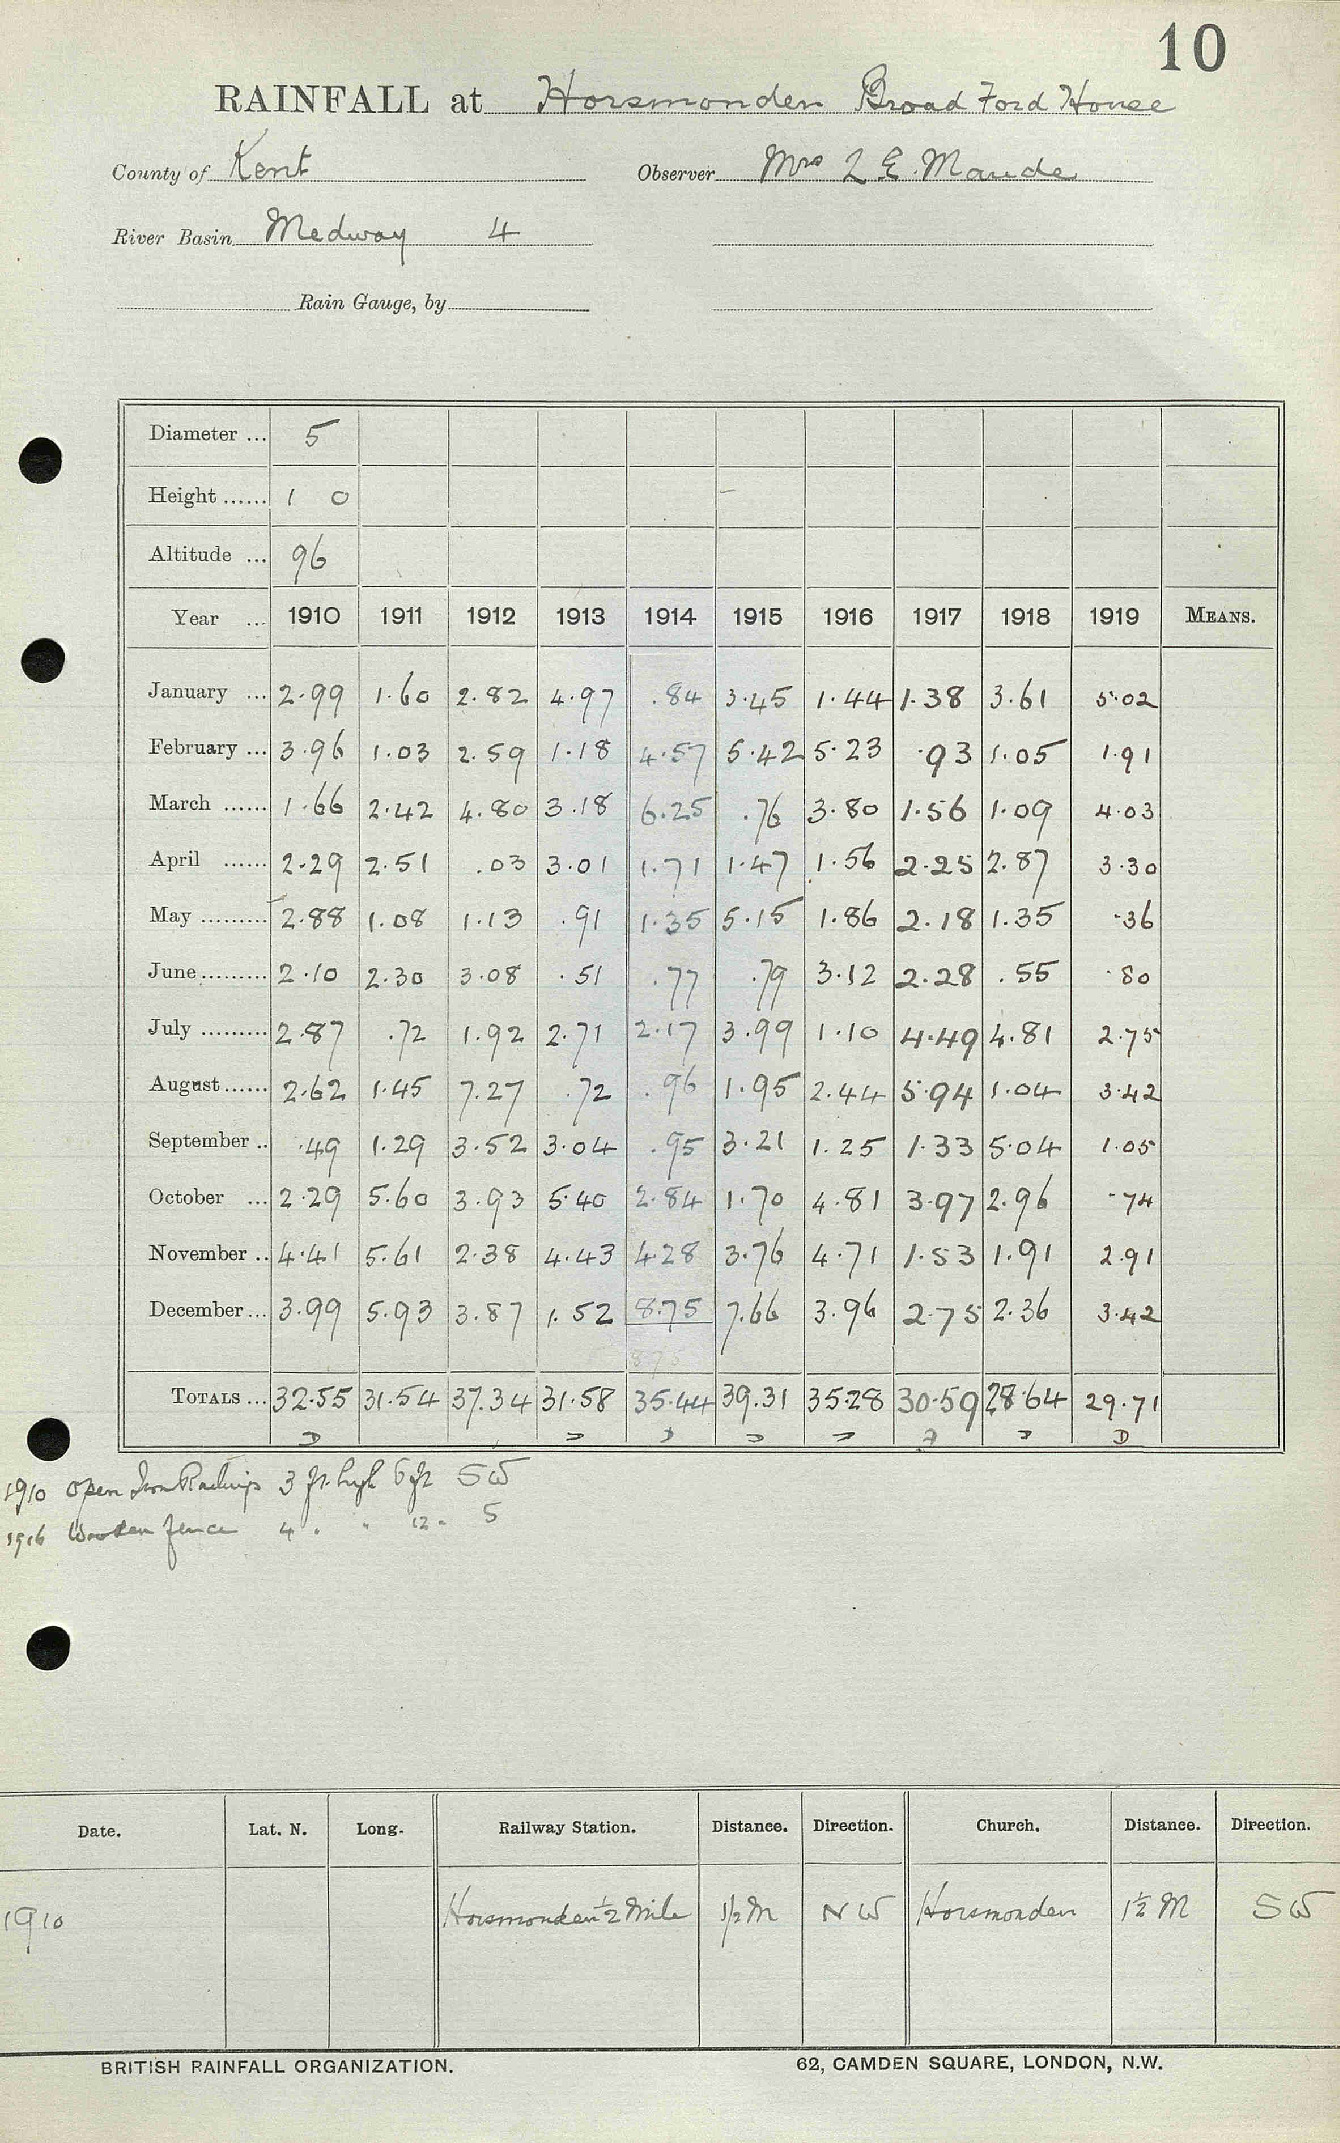 10
RAINFALL at Horsmonden Broad Ford House
County of Kent Observer Mrs L E. Maude
River Basin Medway 4
Rain Gauge, by
Diameter ... 5
Height ...... 1 0
Altitude ... 96
Year ... 1910 1911 1912 1913 1914 1915 1916 1917 1918 1919 MEANS.
January ... 2.99 1.60 2.82 4.97 .84 3.45 1.44 1.38 3.61 5.02
February ... 3.96 1.03 2.59 1.18 4.57 5.42 5.23 .93 1.05 1.91
March ...... 1.66 2.42 4.80 3.18 6.25 .76 3.80 1.56 1.09 4.03
April ...... 2.29 2.51 .03 3.01 1.71 1.47 1.56 2.25 2.87 3.30
May ......... 2.88 1.08 1.13 .91 1.35 5.15 1.86 2.18 1.35 .36
June ......... 2.10 2.30 3.08 .51 .77 .79 3.12 2.28 .55 .80
July ......... 2.87 .72 1.92 2.71 2.17 3.99 1.10 4.49 4.81 2.75
August ...... 2.62 1.45 7.27 .72 .96 1.95 2.44 5.94 1.04 3.42
September .. .49 1.29 3.52 3.04 .95 3.21 1.25 1.33 5.04 1.05
October ... 2.29 5.60 3.93 5.40 2.84 1.70 4.81 3.97 2.96 .74
November .. 4.41 5.61 2.38 4.43 4.28 3.76 4.71 1.53 1.91 2.91
December ... 3.99 5.93 3.87 1.52 8.75 7.66 3.96 2.75 2.36 3.42
875
TOTALS ... 32.55 31.54 37.34 31.58 35.44 39.31 35.28 30.59 28.64 29.71
D D D
1910 Open Iron Railings 3 ft. high 6 ft SW
1916 Wooden fence 4 " " 12 " S
Date. Lat. N. Long. Railway Station. Distance. Direction. Church. Distance. Direction.
1910 Horsmonden ½ Mile ½ M NW Horsmonden 1½ M SW
BRITISH RAINFALL ORGANIZATION. 62, CAMDEN SQUARE, LONDON, N.W.